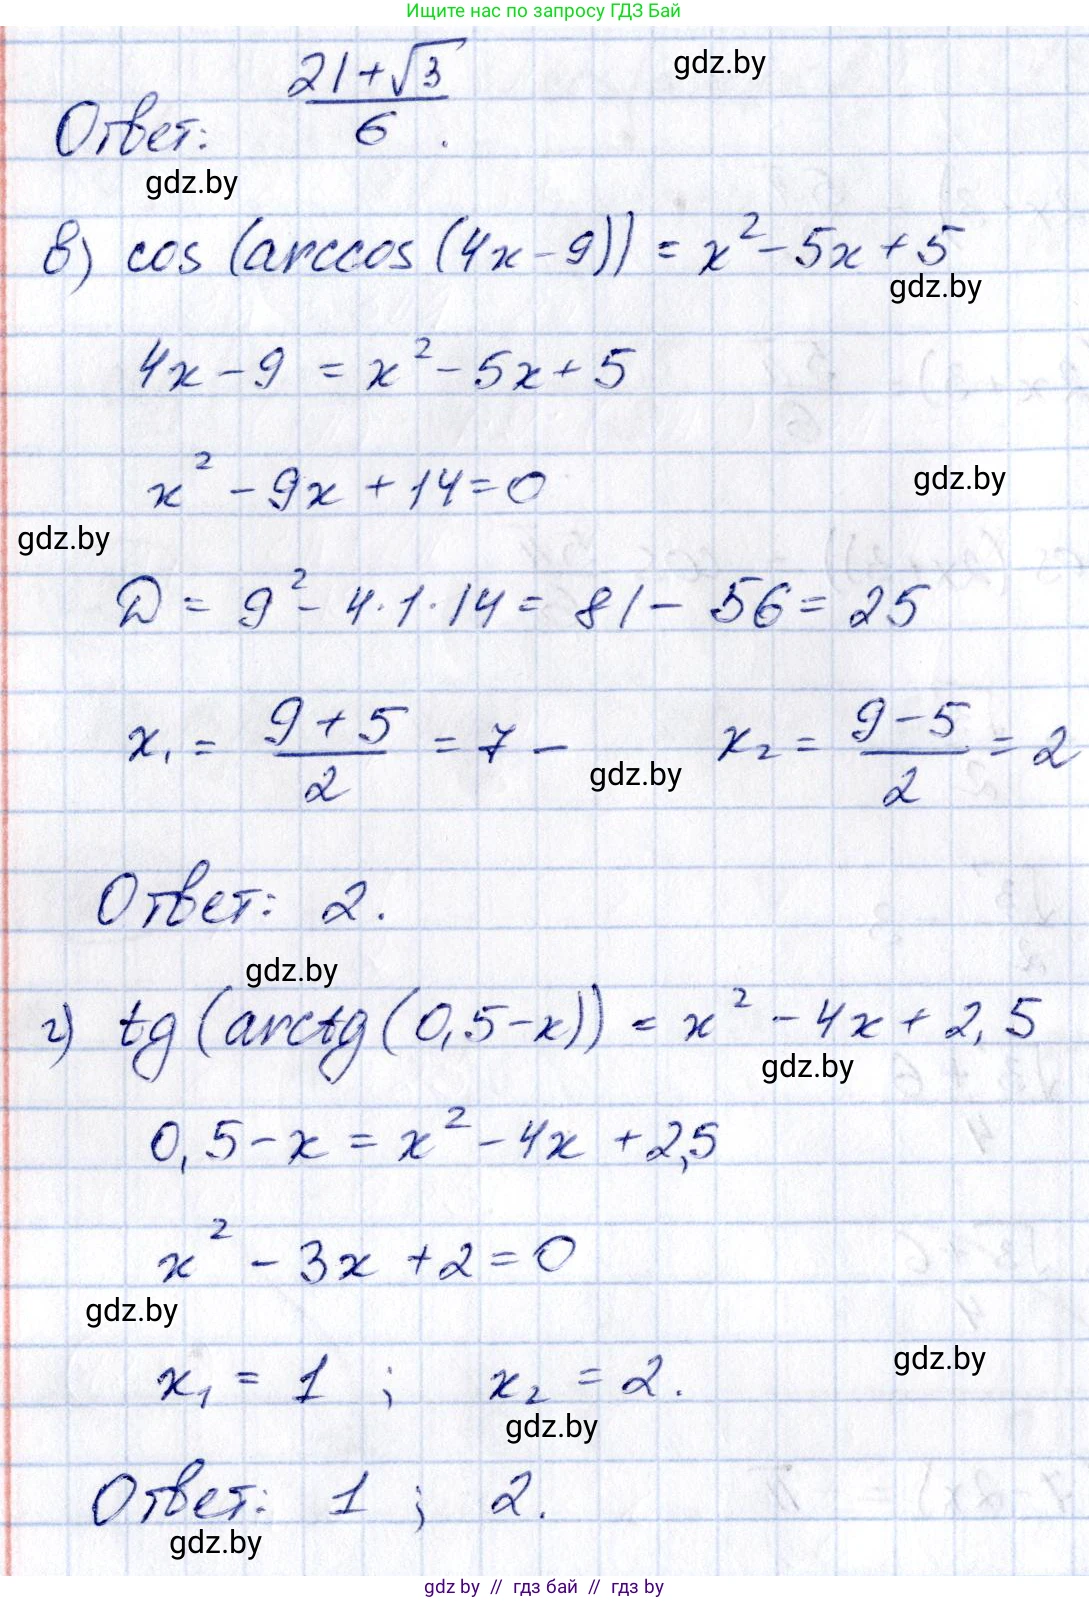 Ищите нас по запросу ГДЗ Бай
Ответ: (21+√3)/6.
gdz.by
gdz.by
в) cos (arccos (4x-9)) = x² - 5x + 5
gdz.by
4x - 9 = x² - 5x + 5
x² - 9x + 14 = 0
gdz.by
gdz.by
D = 9² - 4·1·14 = 81 - 56 = 25
x₁ = (9+5)/2 = 7 - x₂ = (9-5)/2 = 2
gdz.by
Ответ: 2.
gdz.by
г) tg (arctg (0,5-x)) = x² - 4x + 2,5
gdz.by
0,5 - x = x² - 4x + 2,5
x² - 3x + 2 = 0
gdz.by
gdz.by
x₁ = 1 ; x₂ = 2.
gdz.by
Ответ: 1 ; 2.
gdz.by
gdz by // гдз бай // гдз by